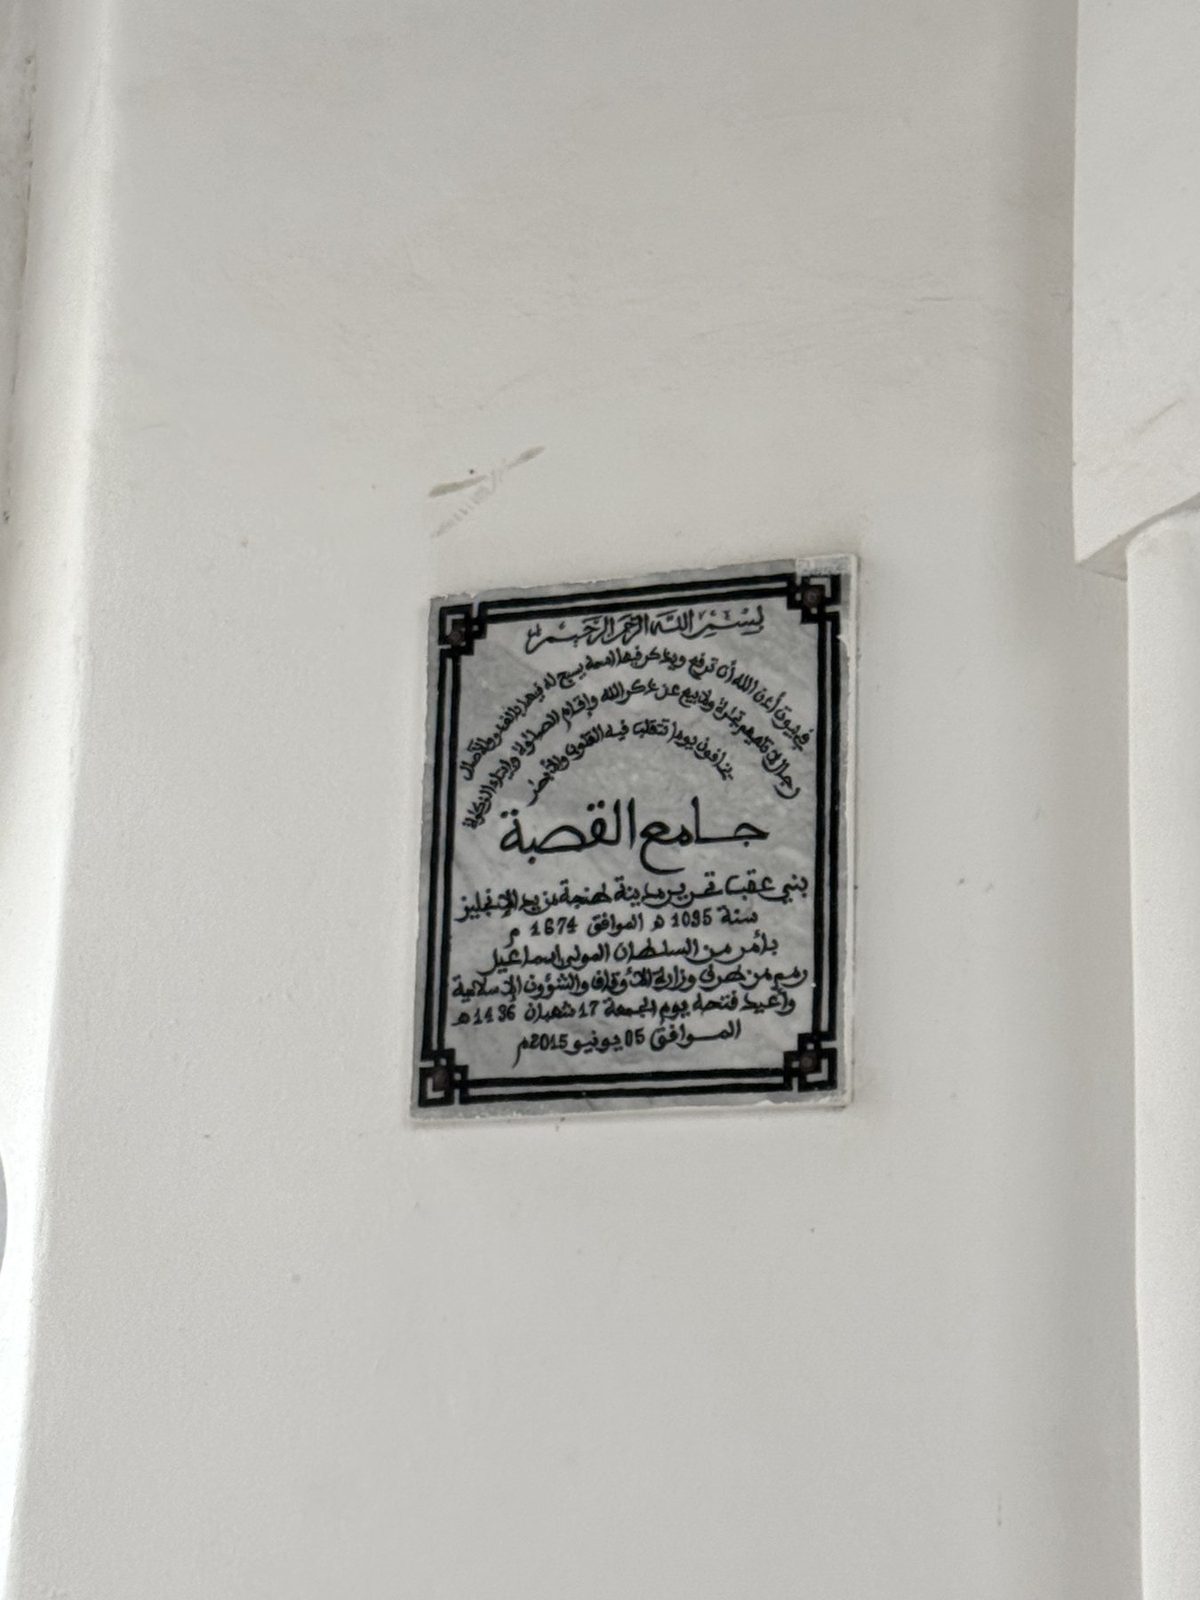 بسم الله الرحمن الرحيم
في بيوت أذن الله أن ترفع ويذكر فيها اسمه يسبح له فيها بالغدو والآصال
رجال لا تلهيهم تجارة ولا بيع عن ذكر الله وإقام الصلوة وإيتاء الزكوة
يخافون يوما تتقلب فيه القلوب والأبصار
جامع القصبة
بني عقب تحرير مدينة طنجة من يد الإنجليز
سنة 1095 ه الموافق 1674 م
بأمر من السلطان المولى اسماعيل
رمم من طرف وزارة الأوقاف والشؤون الإسلامية
وأعيد فتحه يوم الجمعة 17 شعبان 1436 ه
الموافق 05 يونيو 2015م